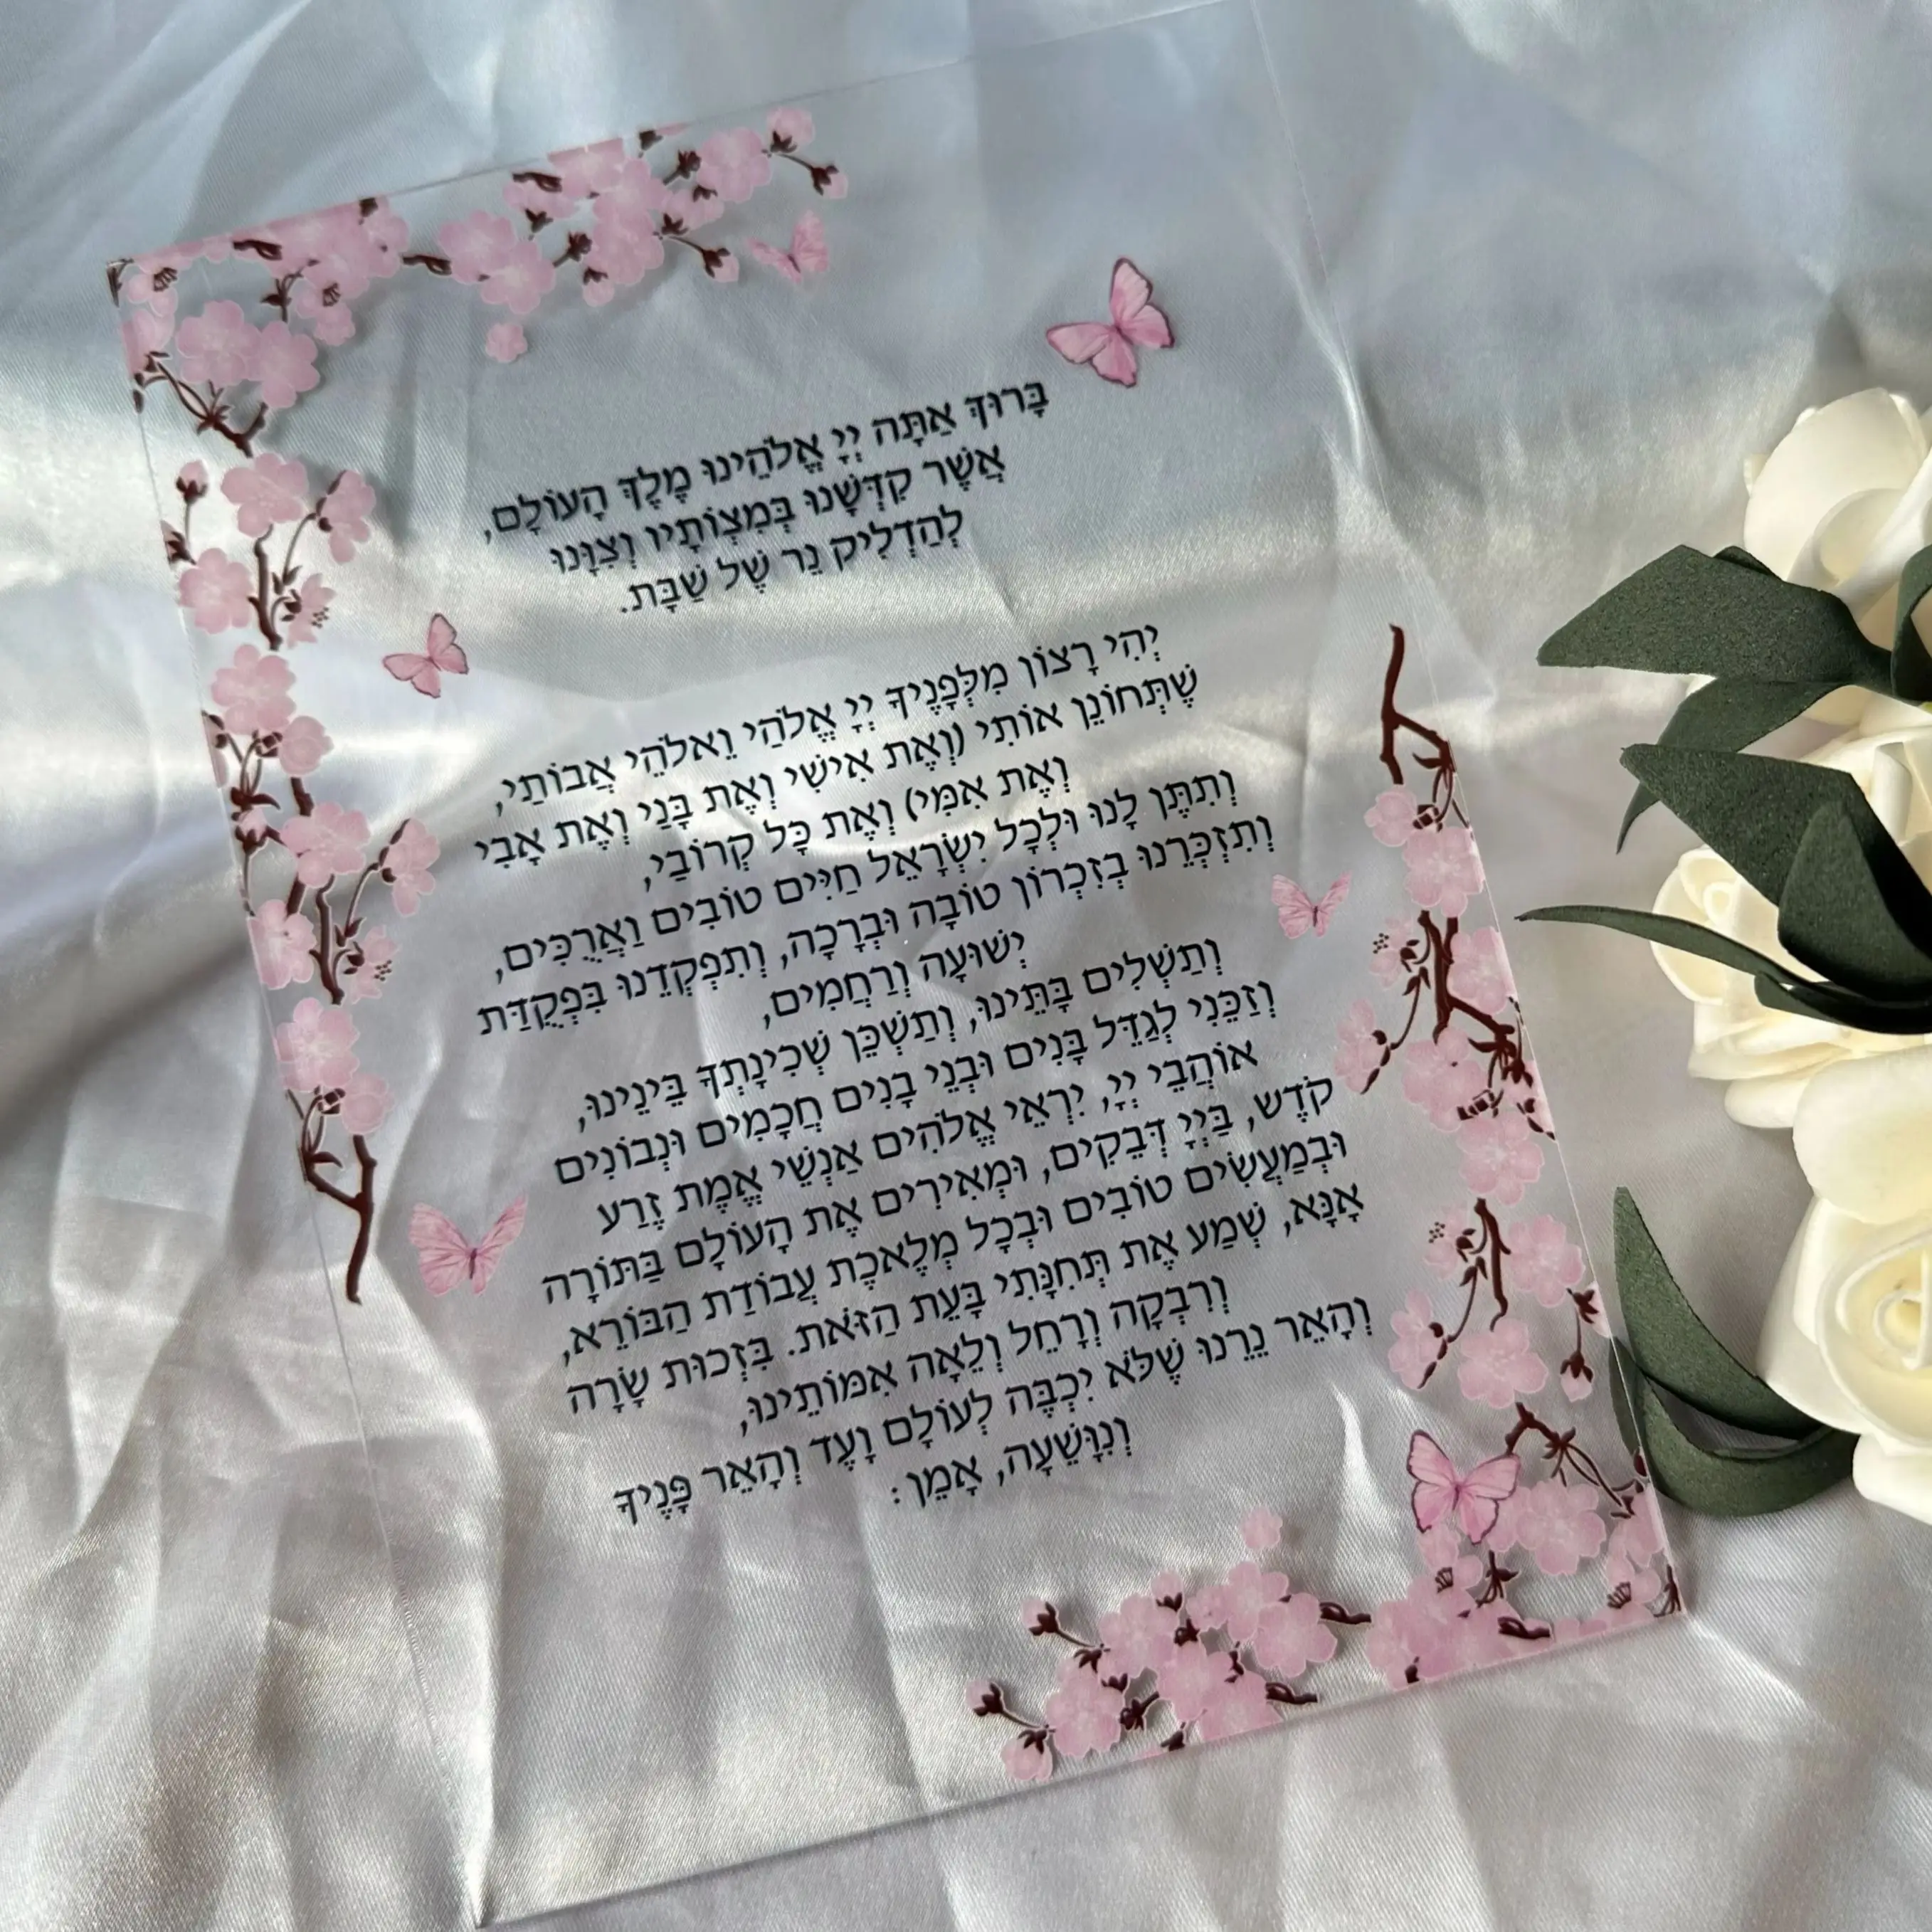 בָּרוּךְ אַתָּה יְיָ אֱלֹהֵינוּ מֶלֶךְ הָעוֹלָם,
אֲשֶׁר קִדְּשָׁנוּ בְּמִצְוֹתָיו וְצִוָּנוּ
לְהַדְלִיק נֵר שֶׁל שַׁבָּת.
יְהִי רָצוֹן מִלְּפָנֶיךָ יְיָ אֱלֹהַי וֵאלֹהֵי אֲבוֹתַי,
שֶׁתְּחוֹנֵן אוֹתִי (וְאֶת אִישִׁי וְאֶת בָּנַי וְאֶת אָבִי
וְאֶת אִמִּי) וְאֶת כָּל קְרוֹבַי,
וְתִתֶּן לָנוּ וּלְכָל יִשְׂרָאֵל חַיִּים טוֹבִים וַאֲרֻכִּים,
וְתִזְכְּרֵנוּ בְזִכְרוֹן טוֹבָה וּבְרָכָה, וְתִפְקְדֵנוּ בִּפְקֻדַּת
יְשׁוּעָה וְרַחֲמִים,
וְתַשְׁלִים בָּתֵּינוּ, וְתַשְׁכֵּן שְׁכִינָתְךָ בֵּינֵינוּ,
וְזַכֵּנִי לְגַדֵּל בָּנִים וּבְנֵי בָנִים חֲכָמִים וּנְבוֹנִים
אוֹהֲבֵי יְיָ, יִרְאֵי אֱלֹהִים אַנְשֵׁי אֱמֶת זֶרַע
קֹדֶשׁ, בַּיְיָ דְּבֵקִים, וּמְאִירִים אֶת הָעוֹלָם בַּתּוֹרָה
וּבְמַעֲשִׂים טוֹבִים וּבְכָל מְלֶאכֶת עֲבוֹדַת הַבּוֹרֵא,
אָנָּא, שְׁמַע אֶת תְּחִנָּתִי בָּעֵת הַזֹּאת. בִּזְכוּת שָׂרָה
וְרִבְקָה וְרָחֵל וְלֵאָה אִמּוֹתֵינוּ,
וְהָאֵר נֵרֵנוּ שֶׁלֹּא יִכְבֶּה לְעוֹלָם וָעֶד וְהָאֵר פָּנֶיךָ
וְנִוָּשֵׁעָה, אָמֵן: